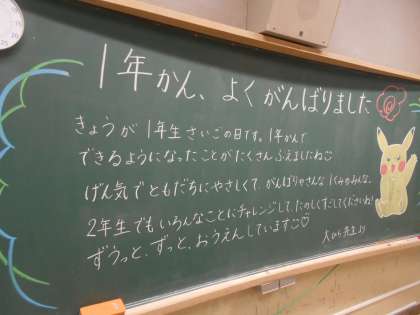 1年かん、よくがんばりました
きょうが1年生さいごの日です。1年かんで
できるようになったことがたくさんふえましたね☺
げん気でともだちにやさしくて、がんばりやさんな1くみのみんな。
2年生でもいろんなことにチャレンジして、たのしくすごしてくださいね!
ずうっと、ずっと、おうえんしています☺♡
先生より